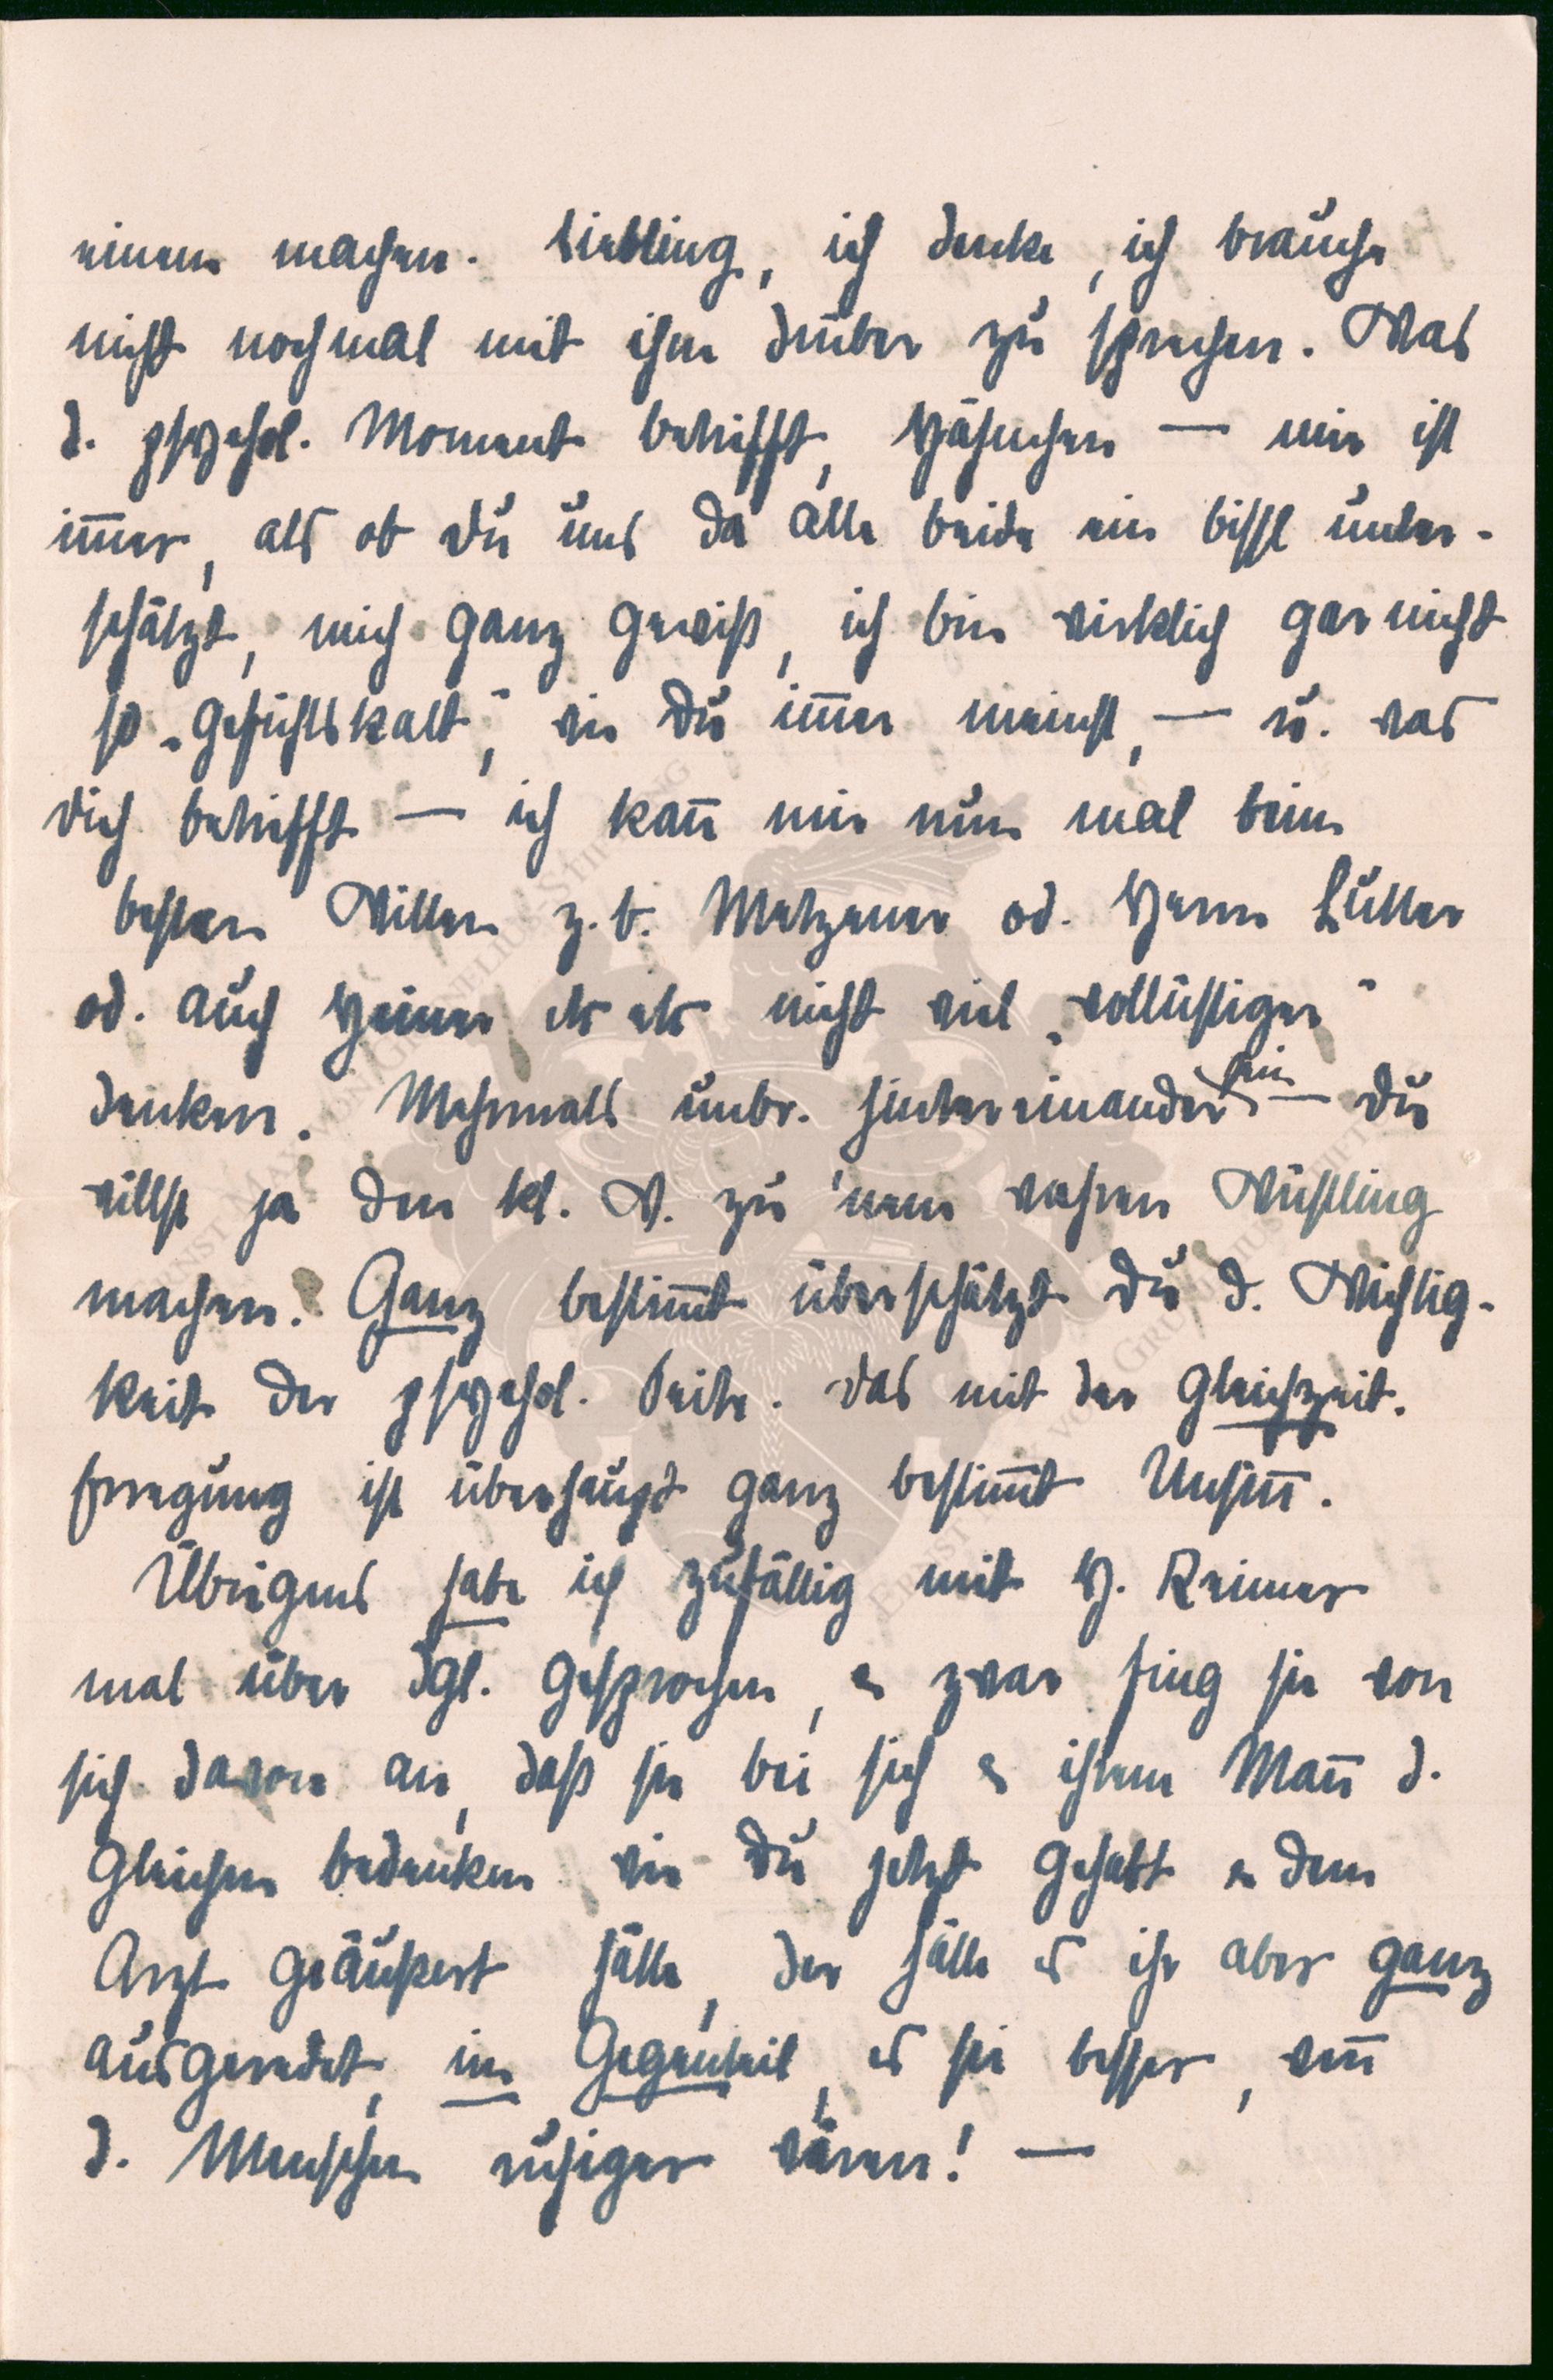 einem machen. Liebling, ich denke, ich brauche
nicht nochmal mit ihm drüber zu sprechen. Was
d. psychol. Moment betrifft, Hähnchen — mir ist
im̅er, als ob Du uns da alle beide ein bissl unter-
schätzt, mich ganz gewiß, ich bin wirklich gar nicht
so „gefühlskalt", wie Du im̅er meinst, — u. was
Dich betrifft — ich kan̅ mir nun mal beim
besten Willen z.B. Metzener od. Herrn Luller
od. auch Heiner etc etc nicht viel „wollüstiger"
denken. Mehrmals unbr. hintereinander hin — Du
willst ja den kl. W. zu 'nem wahren Wüstling
machen! Ganz bestim̅t überschätzt Du d. Wichtig-
keit der psychol. Seite. Das mit der gleichzeit.
Erregung ist überhaupt ganz bestim̅t Unsin̅.
Übrigens habe ich zufällig mit H. Reimer
mal über dgl. gesprochen, & zwar fing sie von
sich davon an, daß sie bei sich & ihrem Man̅ d.
gleichen bedenken wie Du jetzt gehabt & dem
Arzt geäußert hätte, der hätte es ihr aber ganz
ausgeredet, im Gegenteil, es sei besser, wen̅
d. Menschen ruhiger wären! —